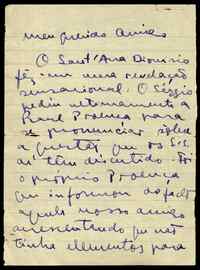 meu querido amigo
O Sant'Ana Dionísio
fêz-me uma revelação
sensacional. O Sérgio
pediu ternamente a
Raul Proença para
se pronunciar sôbre
a questão que os Srs.
aí têm discutido. Foi
o próprio Proença
que informou do facto
aquele nosso amigo
acrescentando que não
tinha elementos para